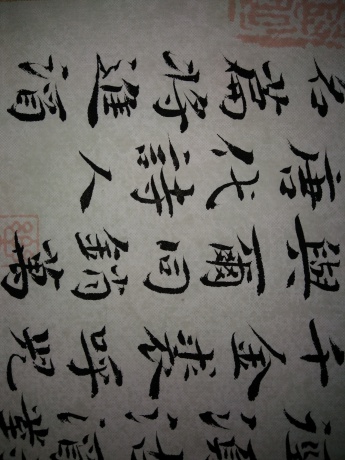 千金裘呼兒
與爾同銷萬
唐代詩人
名篇將進酒